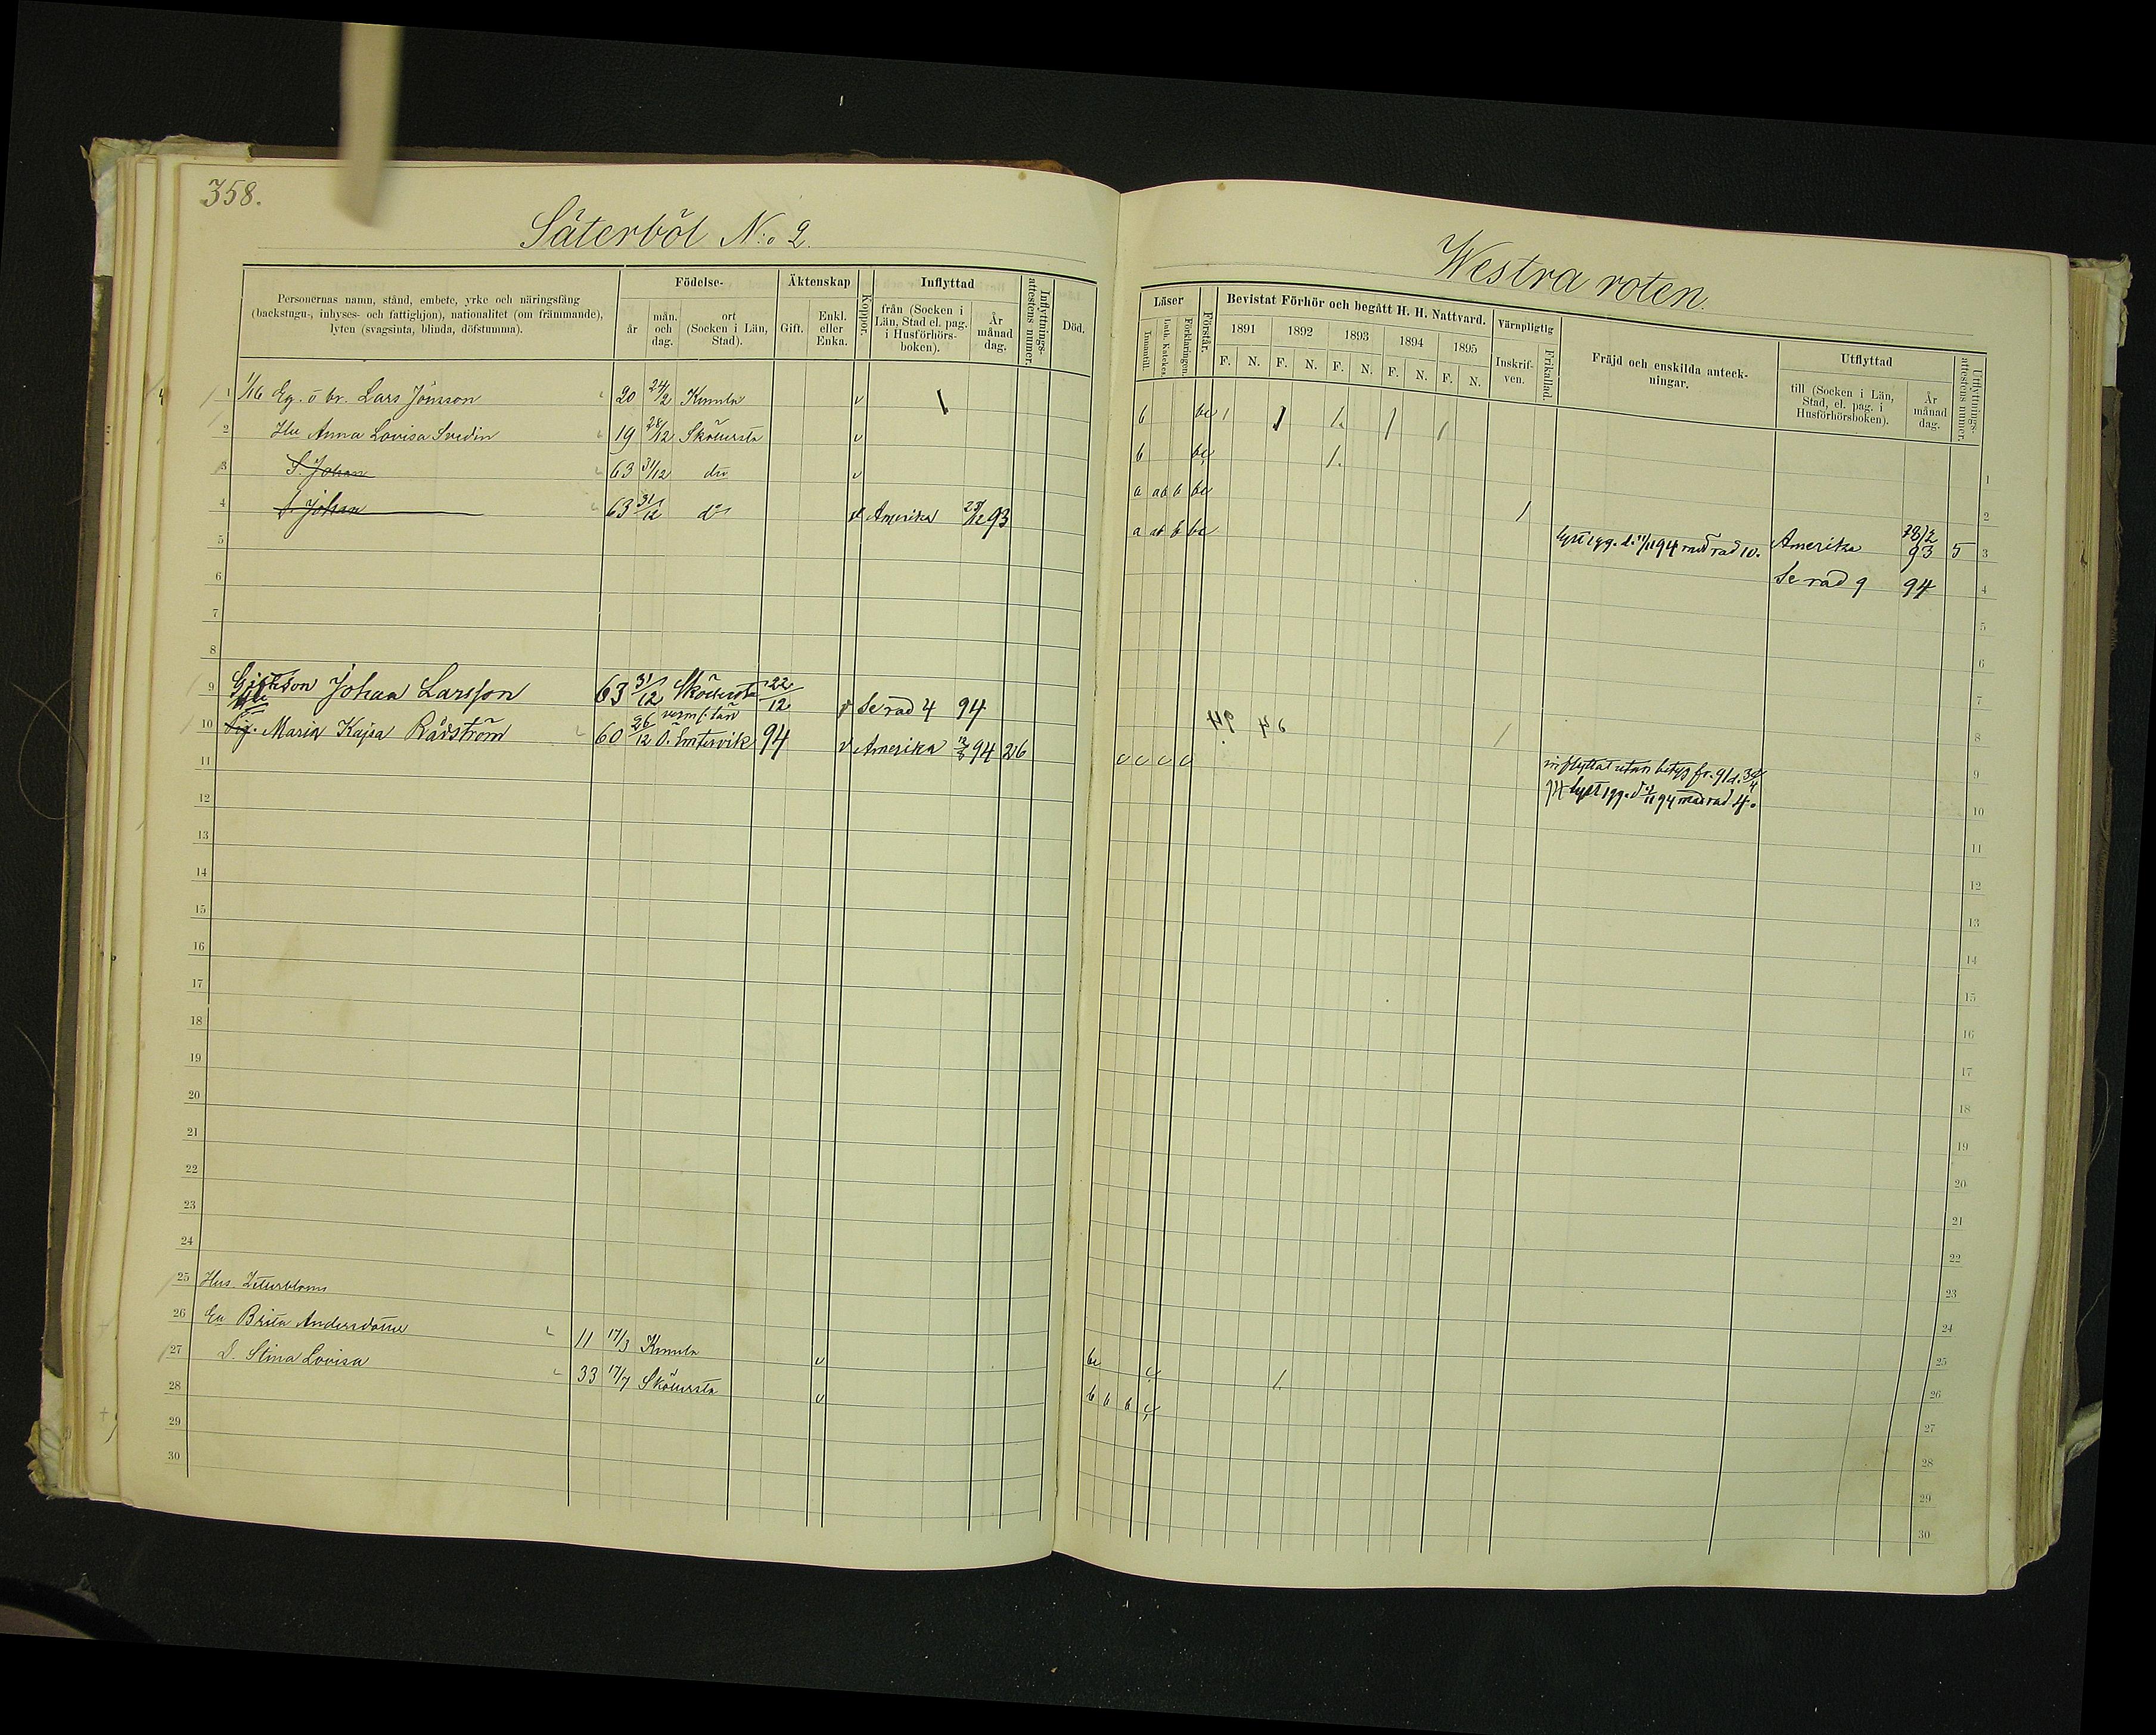 358.
Säterböl N:o 2.
Personernas namn, stånd, embete, yrke och näringsfång
(backstugu-, inhyses- och fattighjon), nationalitet (om främmande),
lyten (svagsinta, blinda, döfstumma).
Födelse-
år
mån. och dag.
ort (Socken i Län, Stad).
Äktenskap
Gift.
Enkl. eller Enka.
Koppor.
Inflyttad
från (Socken i Län, Stad el. pag. i Husförhörs-boken).
År månad dag.
Inflyttnings-attestens numer.
Död.
1 1/16 Eg. o br. Lars Jönsson 20 24/2 Kumla v
2 Hu Anna Lovisa Svedin 19 28/12 Sköllersta v
3 S. Johan 63 31/12 dio v
4 S. Johan 63 31/12 do v Amerika 93
5
6
7
8
9 Johan Larsson 63 31/12 Sköllersta 22/12 v Se rad 4 94
10 Maria Kajsa Rådström 60 26/12 Ö. Emtervik 94 v Amerika 94 26
11
12
13
14
15
16
17
18
19
20
21
22
23
24
25 Hus. Zetterbloms
26 Ea Brita Andersdotter 11 17/3 Kumla v
27 D. Stina Lovisa 33 17/7 Sköllersta v
28
29
30
Westra roten.
Läser
Innantill.
Luth. Katekes.
Förklaringen.
Förstår.
Bevistat Förhör och begått H. H. Nattvard.
1891 1892 1893 1894 1895
F. N. F. N. F. N. F. N. F. N.
Värnpligtig
Inskrif-ven.
Frikallad.
Fräjd och enskilda anteck-
ningar.
Utflyttad
till (Socken i Län, Stad, el. pag. i Husförhörsboken).
År månad dag.
Utflyttnings-attestens numer.
b bc
b bc 1
a ab b bc 2
a ab b bc lyst 1 gg. d. 11/11 94 med rad 10. Amerika 93 5 3
Se rad 9 94 4
5
6
7
8
inflyttat utan betyg fr. 9
lyst 1 gg. 11 94 med rad 4. 10
11
12
13
14
15
16
17
18
19
20
21
22
23
24
bc c 25
b b b c 26
27
28
29
30